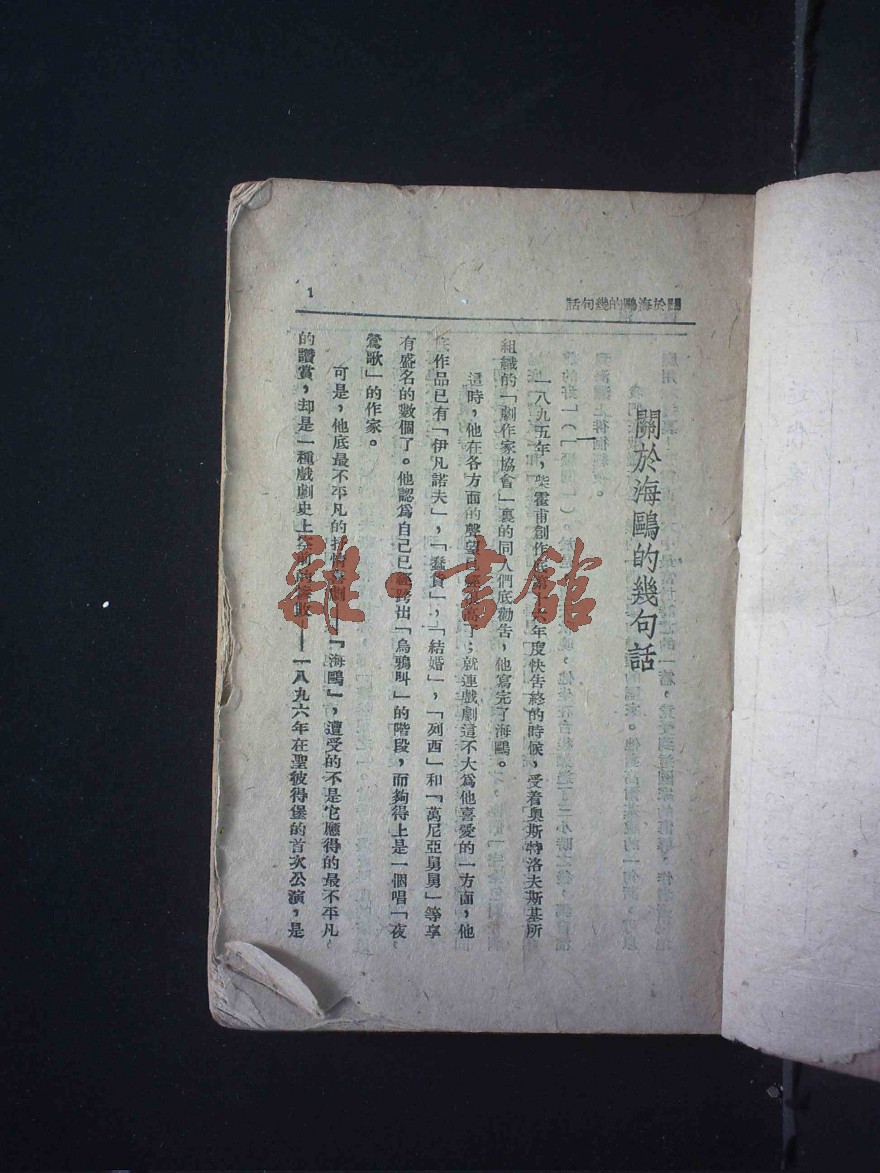 關於海鷗的幾句話
1
關於海鷗的幾句話
一
一八九五年，柴霍甫創作底第十六年度快告終的時候，受着奧斯特洛夫斯基所
組織的「劇作家協會」裏的同人們底勸告，他寫完了海鷗。
這時，他在各方面的聲望已經很高了；就連戲劇這不大爲他喜愛的一方面，他
底作品已有「伊凡諾夫」，「蠢貨」，「結婚」，「列西」和「萬尼亞舅舅」等享
有盛名的數個了。他認爲自己已經跨出「烏鴉叫」的階段，而夠得上是一個唱「夜
鶯歌」的作家。
可是，他底最不平凡的抒情喜劇——「海鷗」，遭受的不是它應得的最不平凡
的讚賞，却是一種戲劇史上空前的慘敗——一八九六年在聖彼得堡的首次公演，是
雜·書館